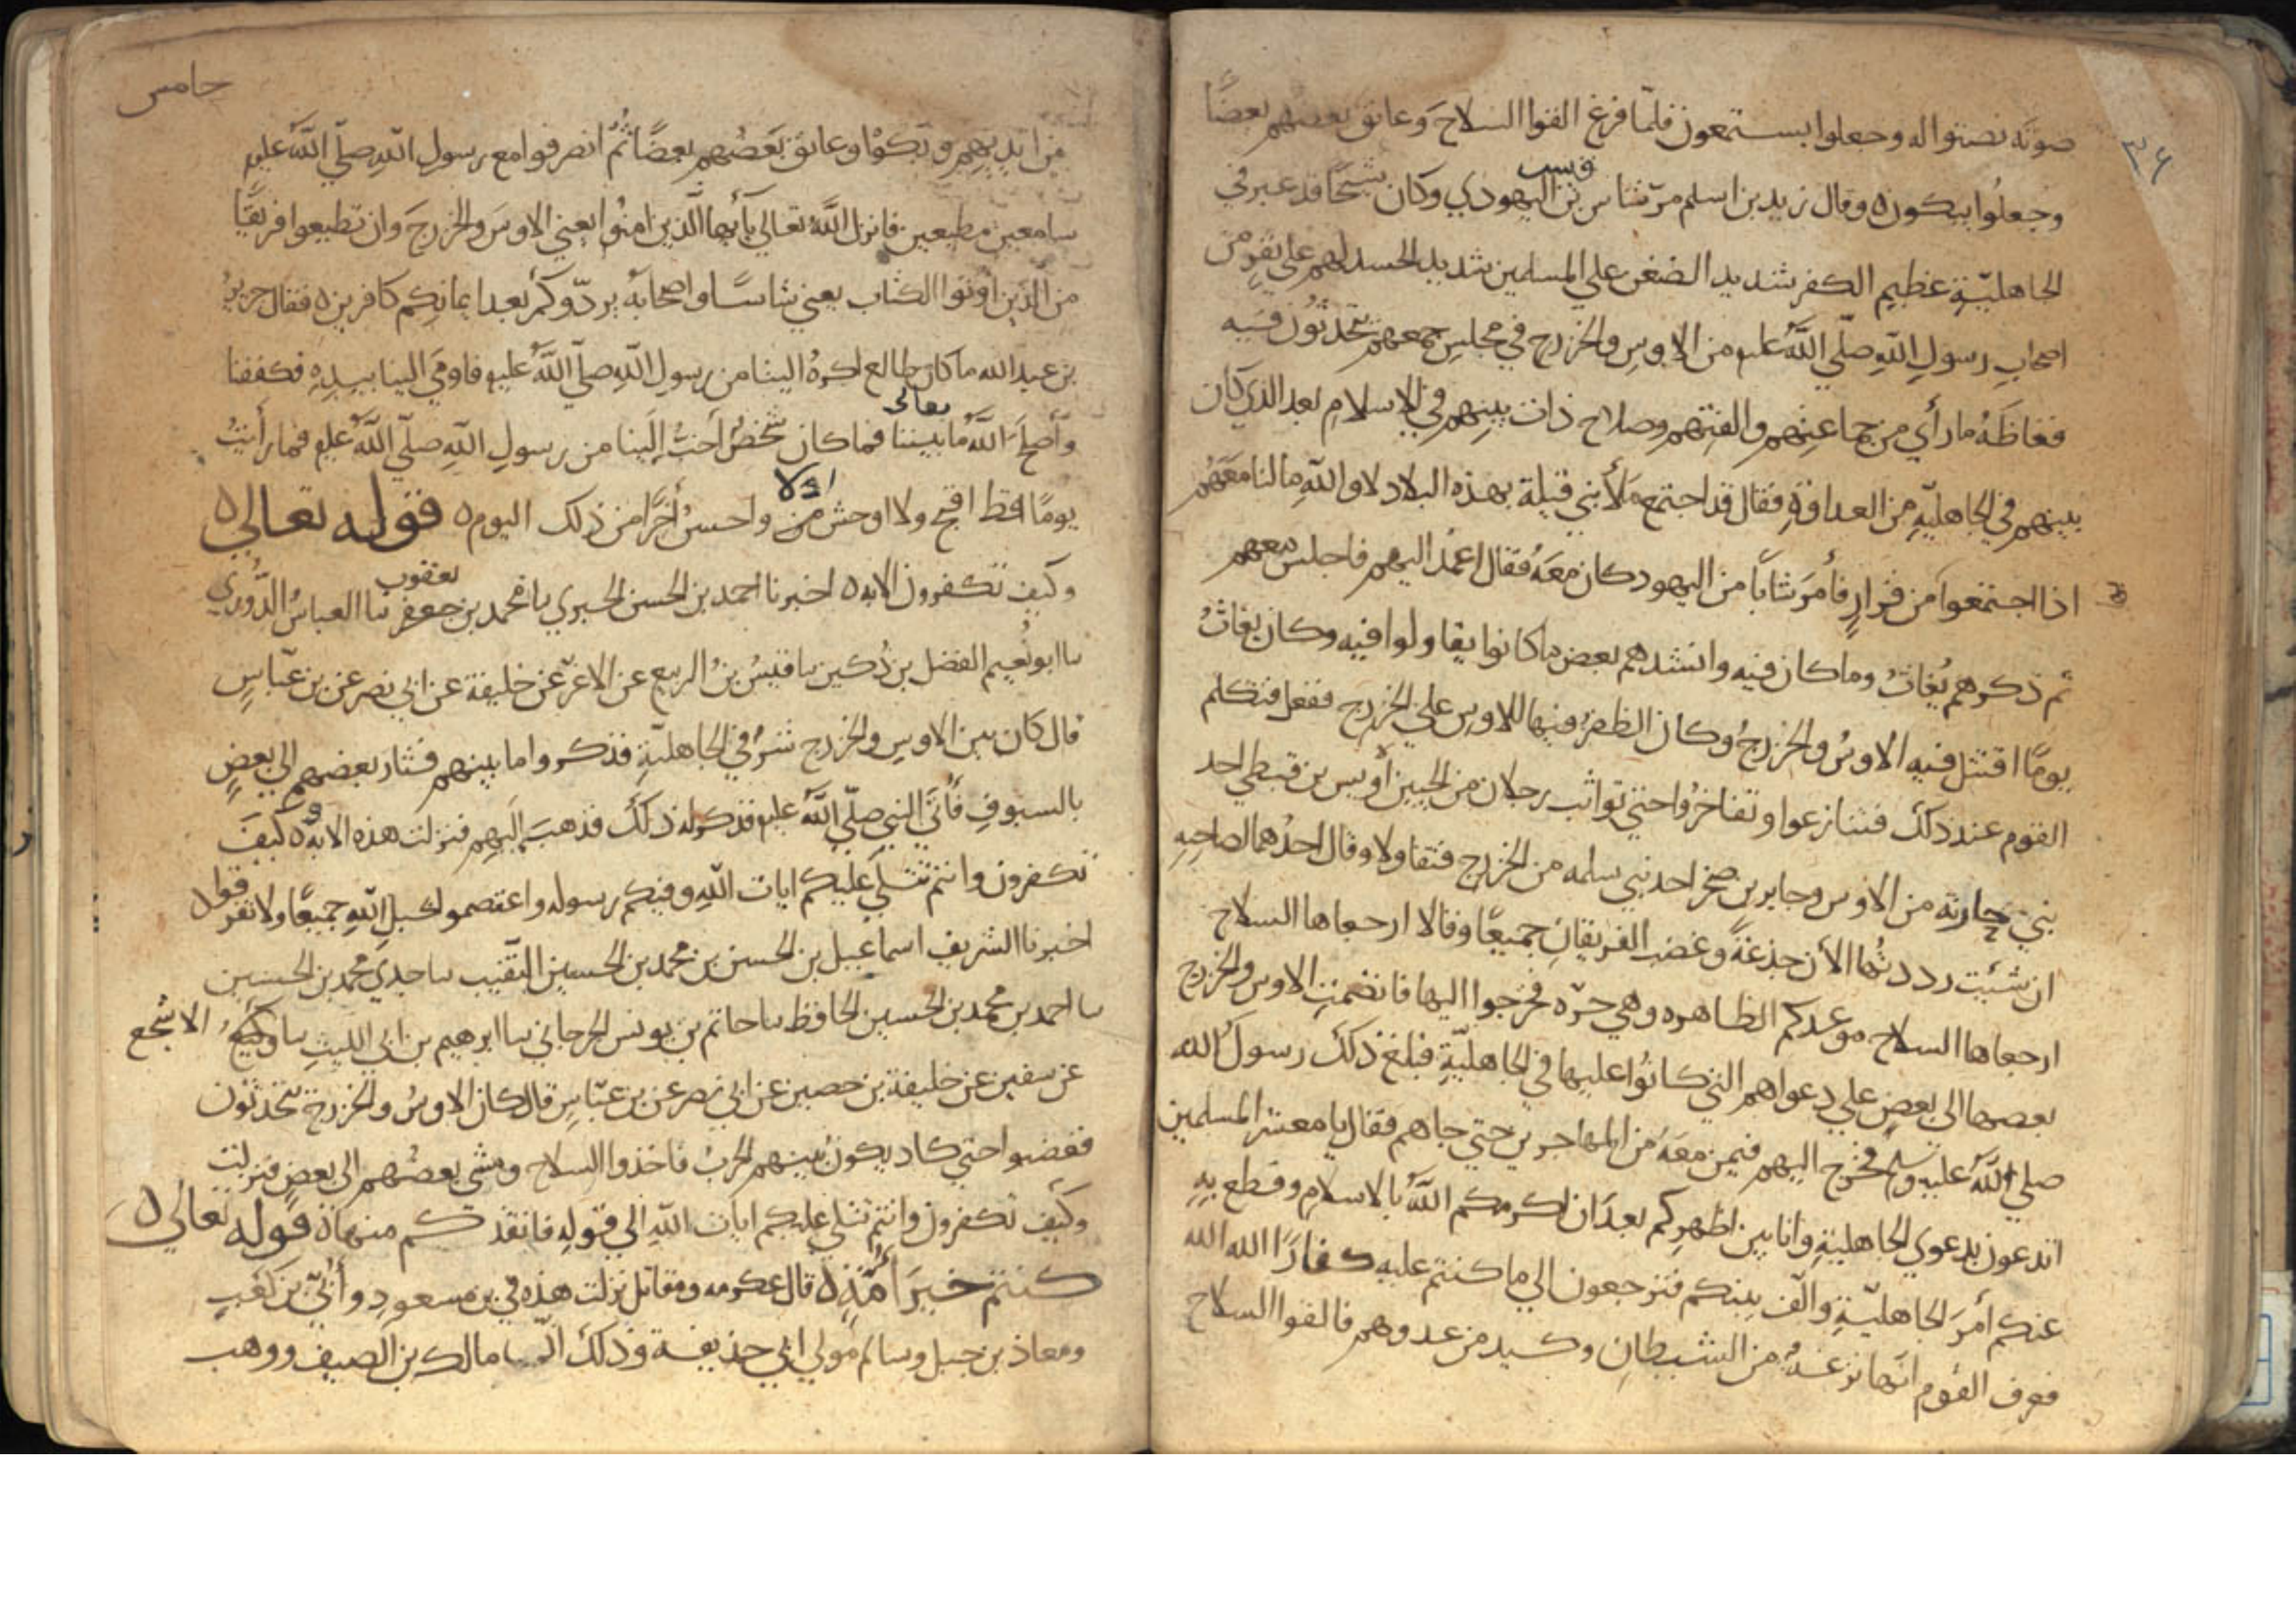 ٣٦
صوته نصتوا له وجعلوا يستمعون فلمّا فرغ القوا السلاح وعانق بعضهم بعضًا
وجعلُوا يبكون ٥ وقال زيد بن اسلم مرّ شاس بن قيس اليهودي وكان شيخًا قد عبر في
الجاهليّة عظيم الكفر شديد الضغن علي المسلمين شديد الحسد لهم علي نفرٍ من
اصحابِ رسولِ اللّهِ صلّي اللّهُ عليه من الاوسِ والخزرج في مجلسٍ جمعهم يتحدّثون فيه
فغاظَهُ ما رأي من جماعتهم والفتهم وصلاح ذات بينهم في الاسلامِ بعد الذي كان
بينهم في الجاهليّةِ من العداوةِ فقال قد اجتمع ملأ بني قيلة بهذه البلاد لا واللّهِ ما لنا معَهُم
اذا اجتمعوا من قرارٍ فأمرَ شابًا من اليهود كان معَهُ فقال اعمُد اليهم فاجلس معهم
ثم ذكرهم بُعاثُ وما كان فيه وانشدهم بعض ما كانوا يقاولوا فيه وكان بعاثُ
يومًا اقتتل فيه الاوسُ والخزرجُ وكان الظفرُ فيها للاوس علي الخزرج ففعل فتكلم
القوم عند ذلك فتنازعوا وتفاخرُوا حتي تواثب رجلان من الحيين أوس بن قيظي احد
بني حارثة من الاوس وجابر بن صخر احد بني سلمه من الخزرج فتقاولا وقال احدُهما لصاحبه
ان شئت رددتُها الأن جذعةً وغضب الفريقان جميعًا وقالا ارجعاها السلاح
ارجعاها السلاح موعدكم الظاهره وهي حرّه فخرجوا اليها فانضمت الاوس والخزرج
بعضها الي بعضٍ علي دعواهم التي كانُوا عليها في الجاهليّةِ فبلغ ذلك رسولَ الله
صلي اللّهُ عليه وسلم فخرج اليهم فيمن معَهُ من المهاجرين حتي جاهم فقال يا معشر المسلمين
اتدعون بدعوي الجاهليةِ وانا بين اظهرِكم بعدَ ان اكرمكم اللّهُ بالاسلام وقطع بهِ
عنكم أمرَ الجاهليّةِ والّف بينكم فترجعون الي ما كنتم عليه كفارًا الله الله
فعرف القوم انّها نزغةٌ من الشيطانِ وكيد من عدوهم فالقوا السلاح
خامس
من ايديهم وبكوْا وعانق بَعضُهم بعضًا ثُمّ انصرفوا مع رسولِ اللّهِ صلّي اللّهُ عليه
سامعين مطيعين فانزل اللّهُ تعالي يأيّها الّذين امنُوا يعني الاوسَ والخزرجَ وان تطيعوا فريقًا
من الّذين اوتوا الكتاب يعني شاسًا واصحابَهُ يردّوكم بَعد ايمانِكم كافرين ٥ فقال جابرُ
بن عبد الله ما كان طالع اكرهُ الينا من رسولِ اللّهِ صلّي اللّهُ عليه فاومي الينا بيدِهِ فكففنا
وأصلَح اللّهُ تعالي ما بيننا فما كان شخصٌ أحبَّ إلَينا من رسولِ اللّهِ صلّي اللّهُ عليه فما رأيتُ
يومًا قط اقبح ولا اوحش من اولا واحسنُ أخَرًا من ذلك اليوم ٥ قوله تعالي ٥
وكيف تكفرون الايه ٥ اخبرنا احمد بن الحسن الحيري نا محمد بن جعفر يعقوب نا العباسُ الدُّوري
نا ابو نُعيم الفضل بن دُكين نا قيسُ بنُ الربيع عن الاغرّ عن خليفة عن ابي نصر عن بن عبّاسٍ
قال كان بين الاوسِ والخزرج شرٌ في الجاهليّةِ فذكروا ما بينهم فثار بعضهم الي بعضٍ
بالسيوفِ فأتَي النبي صلّي اللّهُ عليه فذكر له ذلك فذهبَ إليهم فنزلت هذه الايه ٥ وكيفَ
تكفرون وانتم تتلي عليكم ايات اللّهِ وفيكم رسوله واعتصموا بحبلِ اللّهِ جميعًا ولا تفرقوا ٥
اخبرنا الشريف اسماعيل بن الحسن بن محمد بن الحسين النّقيب نا جدي محمد بن الحسين
نا احمد بن محمد بن الحسين الحافظ نا حاتم بن يونس الجرجاني نا ابرهيم بن ابي الليثِ نا وكيعٌ الاشجع
عن سفين عن خليفة بن حصين عن ابي نصر عن بن عبّاسٍ قال كان الاوسُ والخزرج يتحدّثون
فغضبوا حتي كاد يكونُ بينهم الحربُ فاخذوا السلاح ومشي بعضُهم الي بعضٍ فنزلت
وكَيف تكفرون وانتم تتلي عليكم ايات اللّهِ الي قولِهِ فانقذكم منها ٥ قوله تعالي ٥
كنتم خيرَ أُمّةٍ ٥ قال عكرمه ومقاتل نزلت هذه في بن مسعودٍ وأُبَيّ بن كعبٍ
ومعاذ بن جبل وسالم مولي ابي حذيفة وذلك انّ مالك بن الصيف ووهب